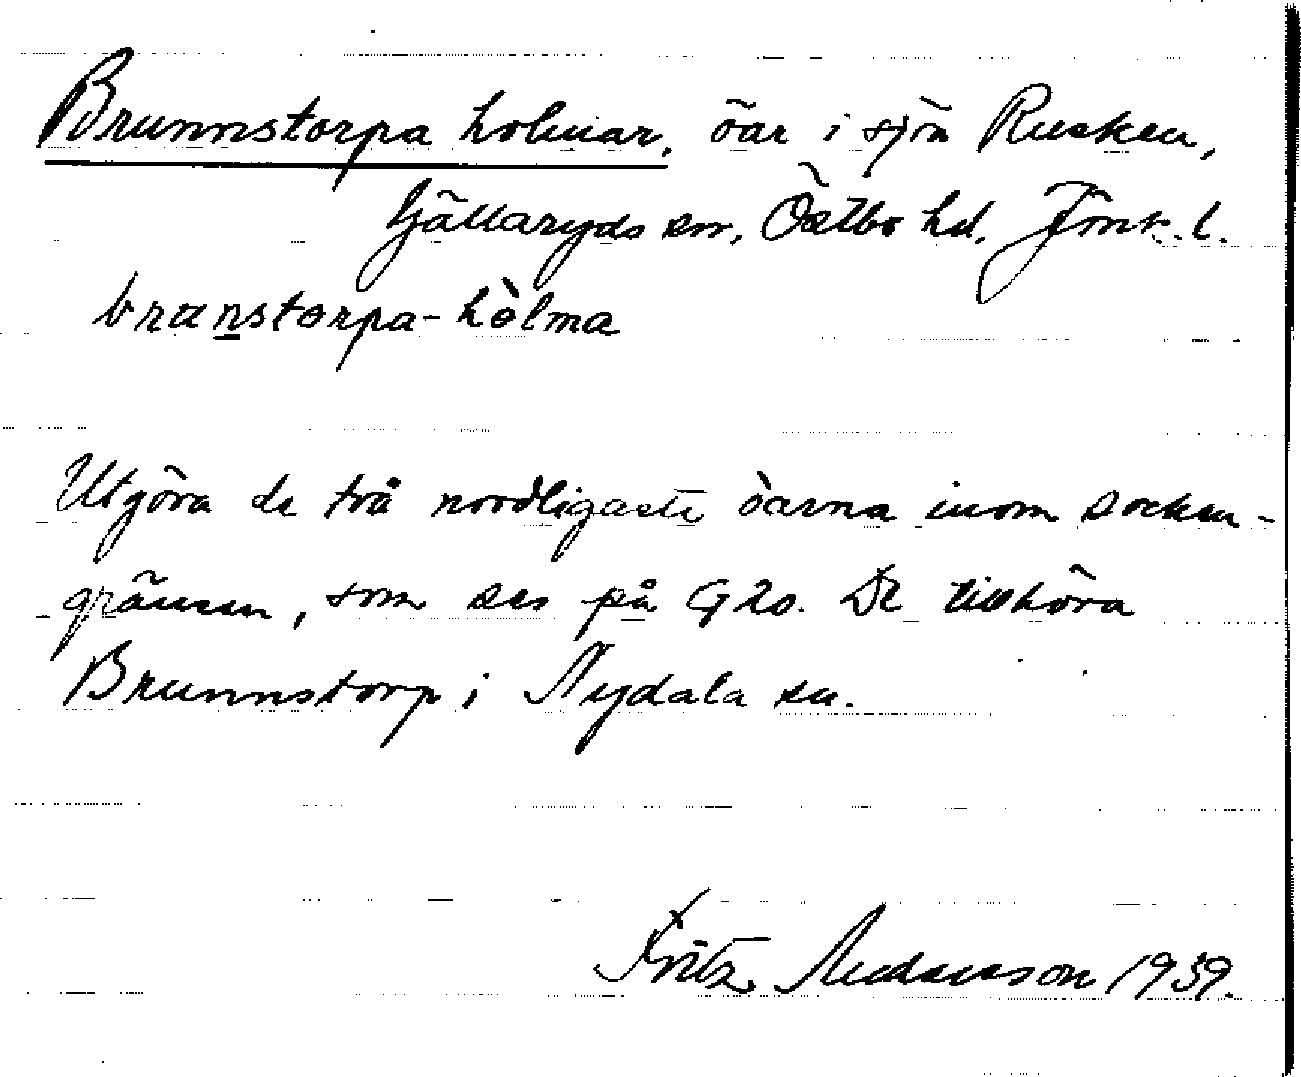 Brunnstorpa holmar, öar i sjön Rusken,
Gällaryds sn, Östbo hd, Jönk. l.
branstorpa-hòlma
Utgöra de två nordligaste öarna inom socken-
gränsen, som ses på G 20. De tillhöra
Brunnstorp i Nydala sn.
Fritz Andersson 1939.